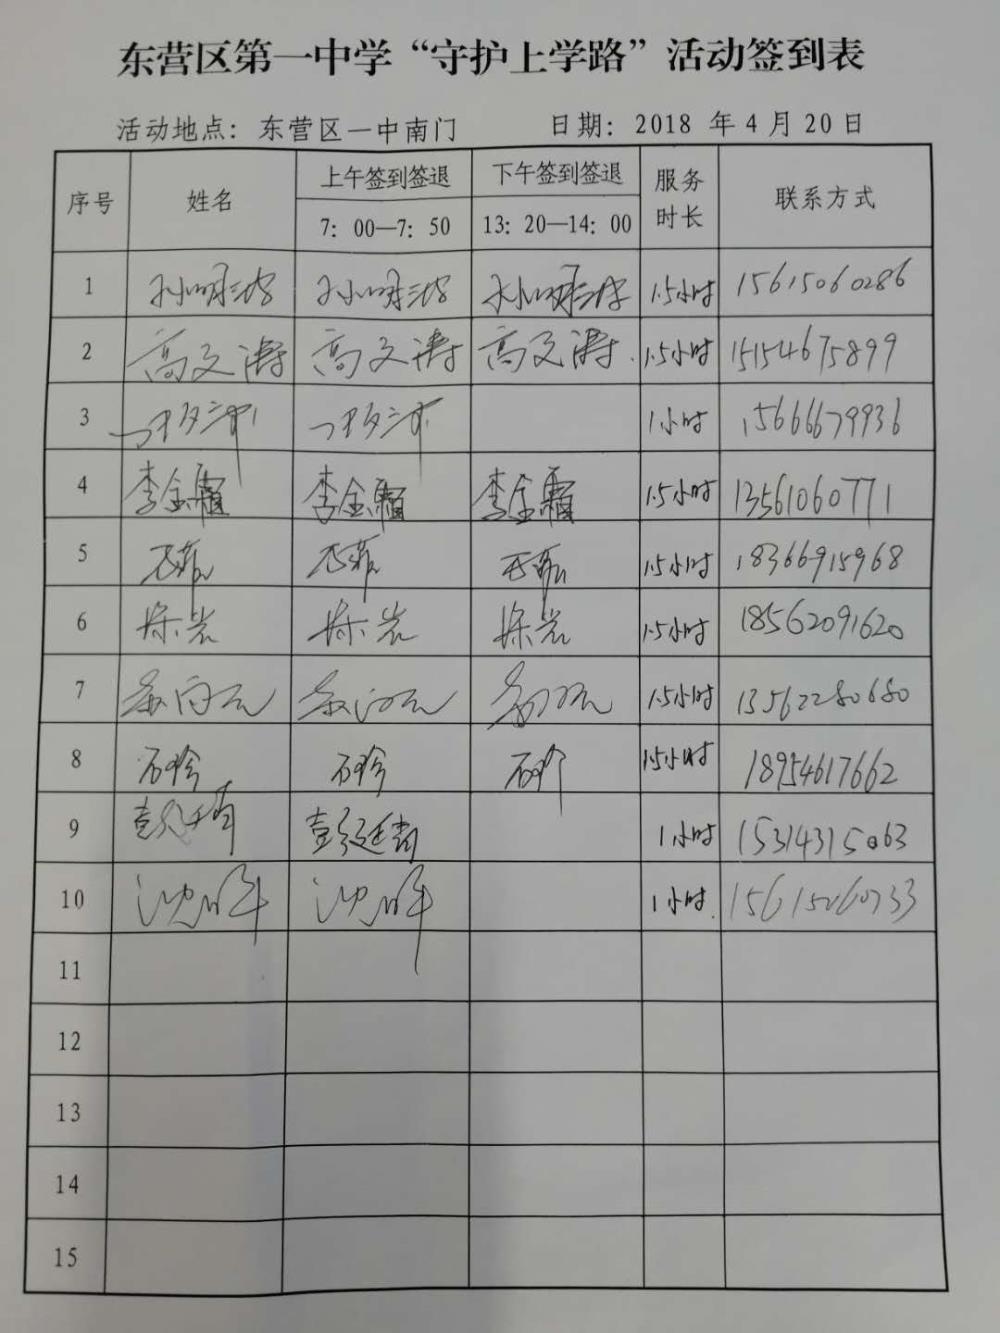 东营区第一中学“守护上学路”活动签到表
活动地点：东营区一中南门 日期：2018 年 4 月 20 日
序号 姓名 上午签到签退 下午签到签退 服务时长 联系方式
7：00—7：50 13：20—14：00
1 1.5小时 15615060286
2 高文涛 高文涛 高文涛 1.5小时 15154675899
3 1小时 15666679936
4 李金霜 李金霜 李金霜 1.5小时 13561060771
5 1.5小时 18366915968
6 徐岩 徐岩 徐岩 1.5小时 18562091620
7 1.5小时 13562280680
8 石玲 石玲 石玲 1.5小时 18954617662
9 1小时 15314315063
10 1小时
11
12
13
14
15